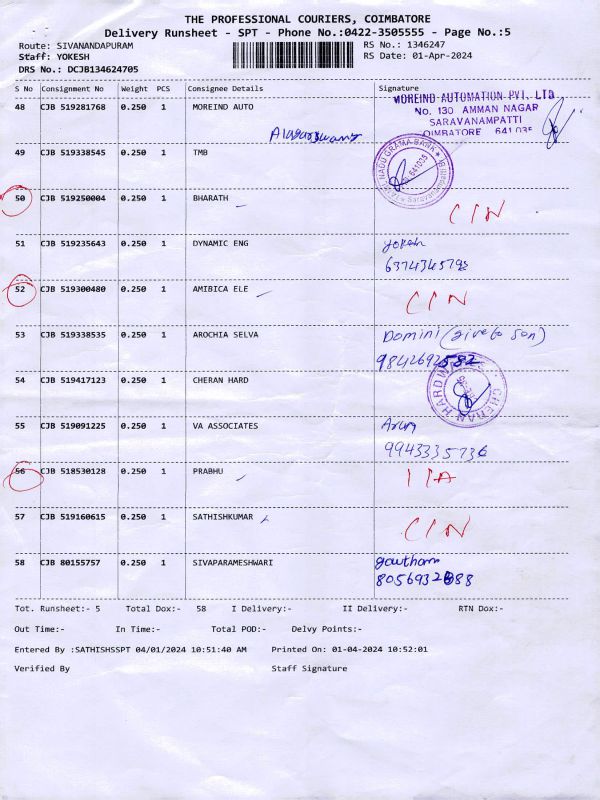 THE PROFESSIONAL COURIERS, COIMBATORE
Delivery Runsheet - SPT - Phone No.:0422-3505555 - Page No.:5
Route: SIVANANDAPURAM
RS No.: 1346247
Staff: YOKESH
RS Date: 01-Apr-2024
DRS No.: DCJB134624705
S No Consignment No Weight PCS Consignee Details Signature
48 CJB 519281768 0.250 1 MOREIND AUTO
MOREIND AUTOMATION PVT. LTD
No. 130 AMMAN NAGAR
SARAVANAMPATTI
OIMBATORE 641 035
49 CJB 519338545 0.250 1 TMB
NADU GRAMA BANK
641035
50 CJB 519250004 0.250 1 BHARATH CIN
51 CJB 519235643 0.250 1 DYNAMIC ENG yokesh
52 CJB 519300480 0.250 1 AMIBICA ELE CIN
53 CJB 519338535 0.250 1 AROCHIA SELVA Domini (give to son)
9842692582
54 CJB 519417123 0.250 1 CHERAN HARD
CHERAN HARDW
55 CJB 519091225 0.250 1 VA ASSOCIATES Arun
9943335736
56 CJB 518530128 0.250 1 PRABHU
57 CJB 519160615 0.250 1 SATHISHKUMAR CIN
58 CJB 80155757 0.250 1 SIVAPARAMESHWARI gowtham
Tot. Runsheet:- 5 Total Dox:- 58 I Delivery:- II Delivery:- RTN Dox:-
Out Time:- In Time:- Total POD:- Delvy Points:-
Entered By :SATHISHSSPT 04/01/2024 10:51:40 AM Printed On: 01-04-2024 10:52:01
Verified By Staff Signature